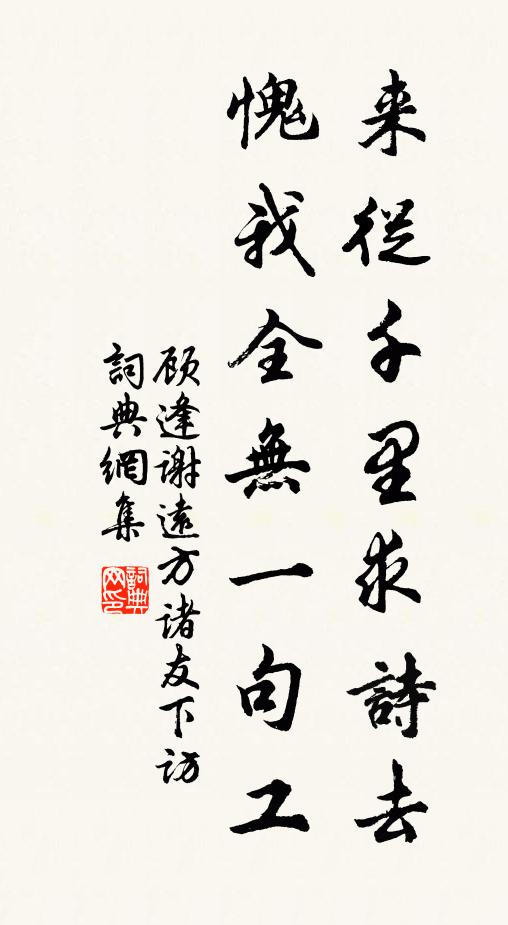 来從千里求詩去
愧我全無一句工
顾逢謝遠方诸友下访
詞典網集
詞典网印